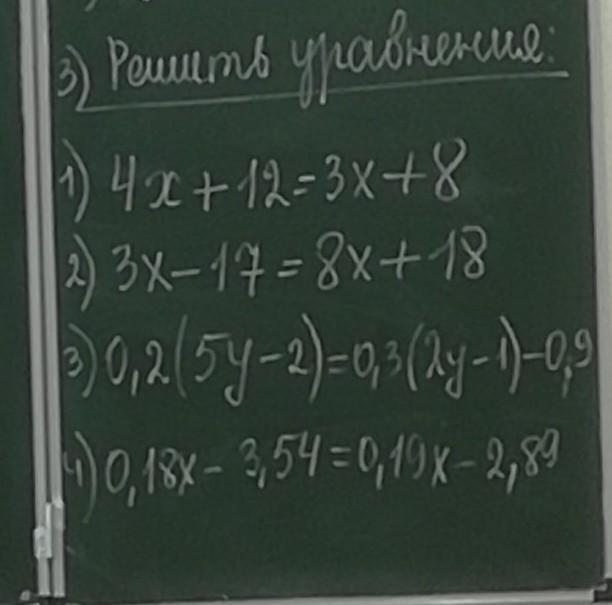 3) Решить уравнения:
1) 4x+12=3x+8
2) 3x-17=8x+18
3) 0,2(5y-2)=0,3(2y-1)-0,9
4) 0,18x-3,54=0,19x-2,89